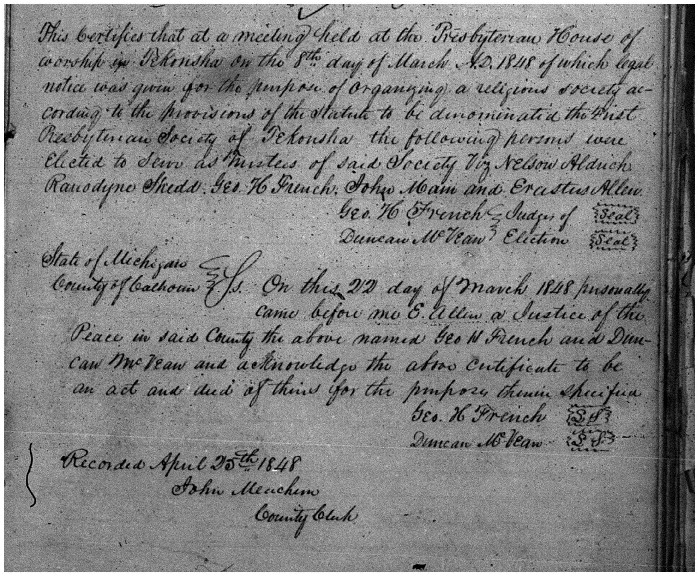 This Certifies that at a meeting held at the Presbyterian House of
worship in Tekonsha on the 8th day of March A.D. 1848 of which legal
notice was given for the purpose of Organizing a religious society ac-
cording to the provisions of the Statute to be denominated the First
Presbyterian Society of Tekonsha the following persons were
Elected to Serve as Trustees of said Society Viz Nelson Aldrich
Ranodyne Shedd, Geo. H French, John Main and Erastus Allen.
Geo. H French Judges of Seal
Duncan McVean Election Seal
State of Michigan
County of Calhoun Ss. On this 22 day of March 1848 personally
came before me E. Allen a Justice of the
Peace in said County the above named Geo H French and Dun-
can McVean and acknowledge the above certificate to be
an act and deed of theirs for the purposes therein specified
Geo. H French L S
Duncan McVean L S
Recorded April 25th 1848
John Meachem
County Clerk